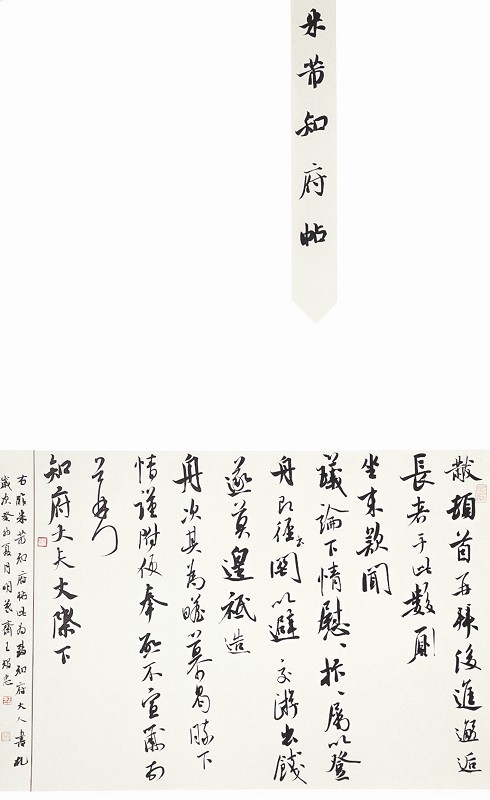 米芾知府帖
黻頓首再拜後進邂逅
長者于此數廁
坐末款聞
議論下情慰、抃、屬以登
舟即徑以避交游出餞
遂莫遑祗造
舟次其為瞻慕曷勝下
情謹附便奉啟不宣黻頓
首再拜
知府大夫丈下
右臨米芾知府帖此為致知府大人書札
歲次癸卯夏月明善齋王忠